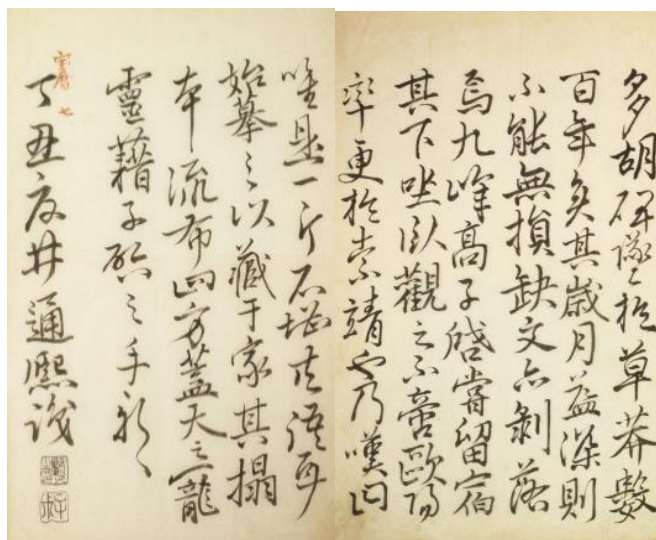 多胡碑隊於草莽數
百年矣其歳月益深則
不能無損缺文亦剝落
焉九峰高子啓嘗留宿
其下坐臥觀之不啻歐陽
率更於索靖也乃嘆曰
唯是一片石堪共語耳
始摹之以藏于家其搨
本流布四方蓋天之寵
靈藉子啓之手
宝暦七
丁丑夏井通熙識